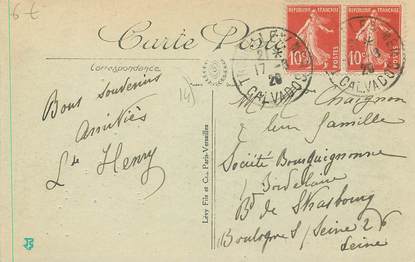 6 €
Carte Postale
Correspondance
RÉPUBLIQUE FRANÇAISE
10c
POSTES
RÉPUBLIQUE FRANÇAISE
10c
POSTES
17
20
CALVADOS
20
CALVADOS
Bons Souvenirs
Amitiés
Henry
Lévy Fils et Cie, Paris-Versailles
Chaignon
& leur famille
Société Bourguignonne
Bordelaise
Bd de Strasbourg
Boulogne s/ Seine 26
Seine